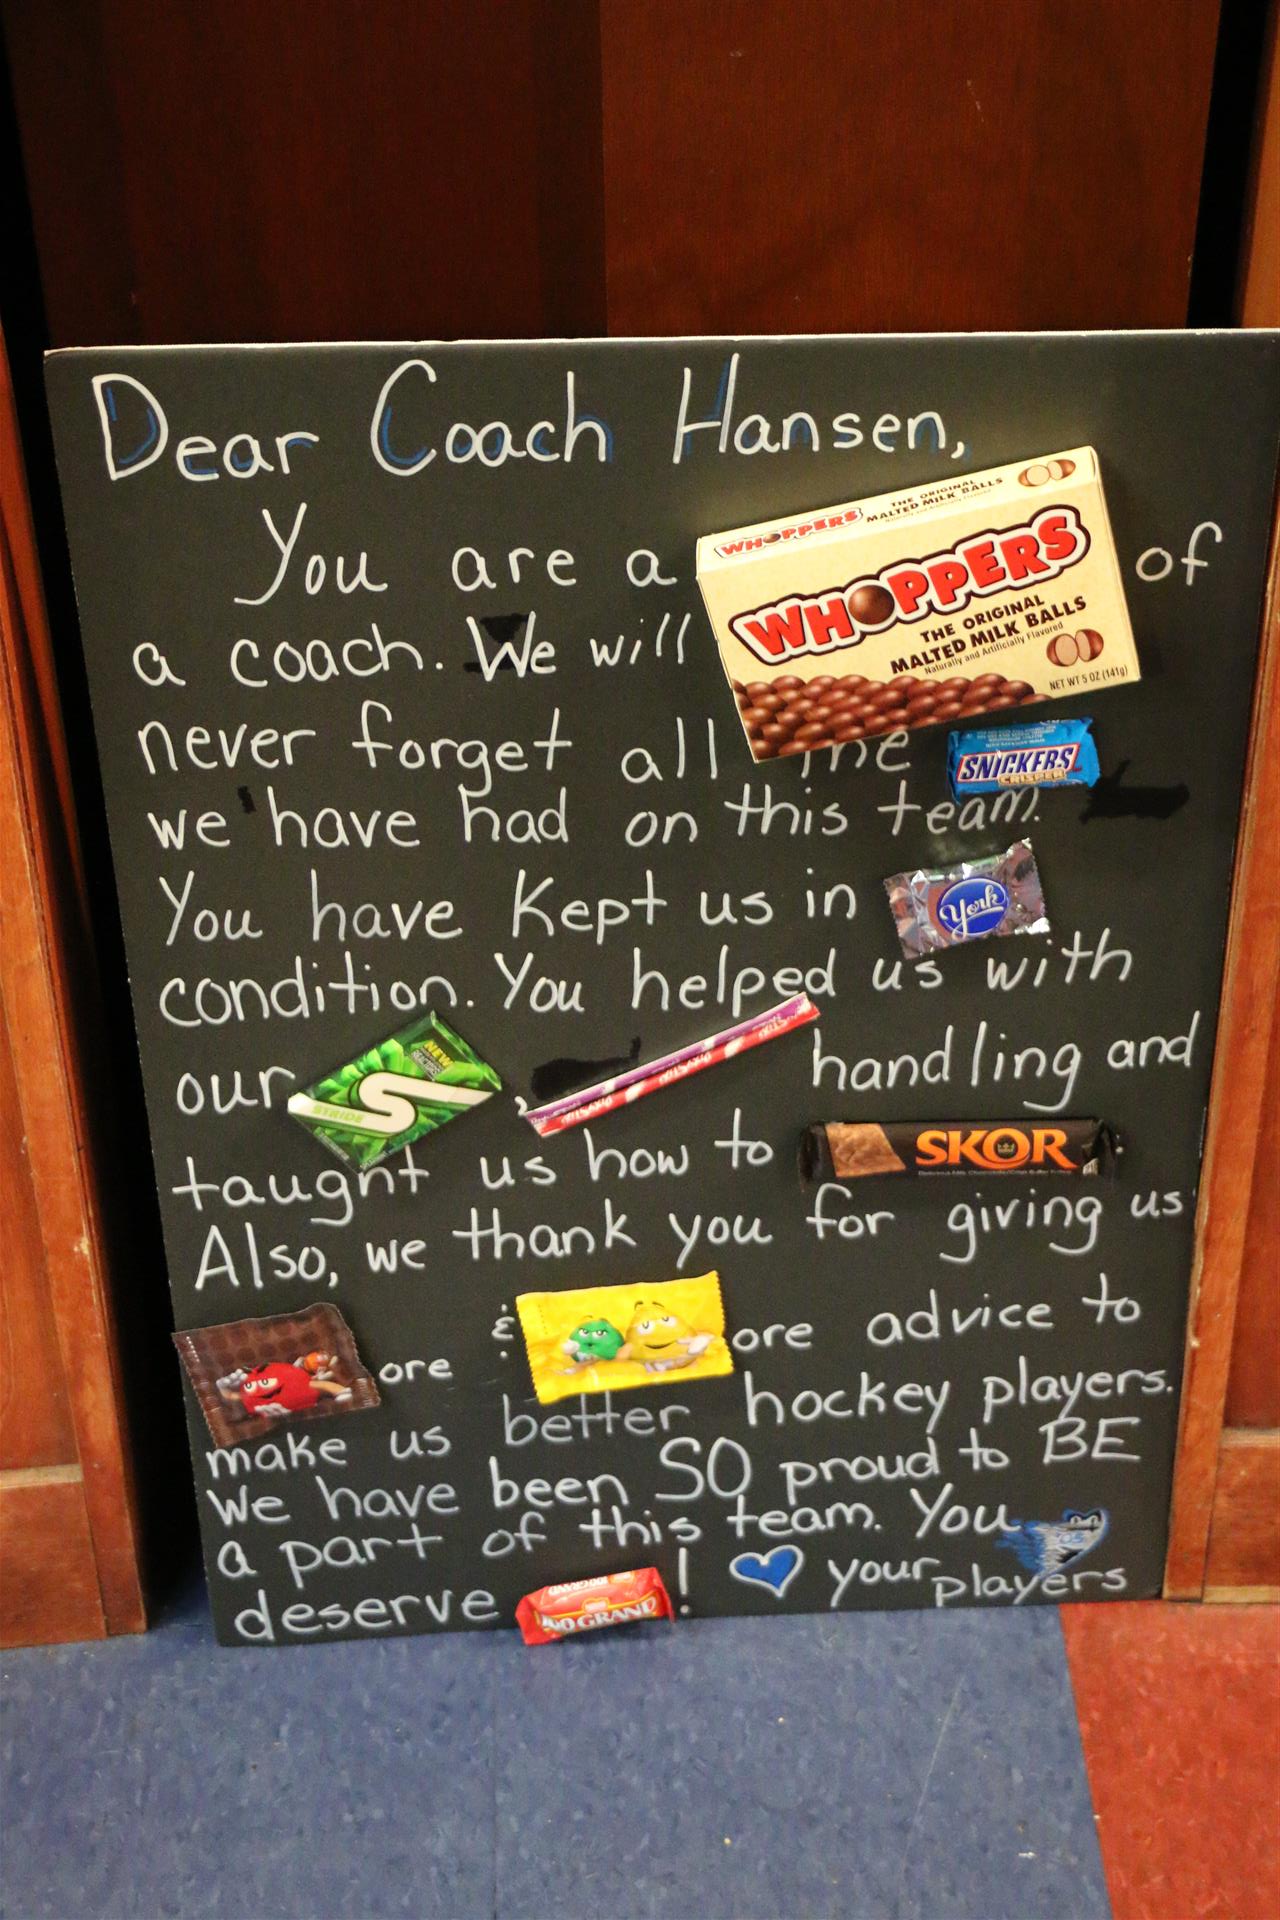 Dear Coach Hansen,
You are a WHOPPERS of
WHOPPERS THE ORIGINAL MALTED MILK BALLS
Naturally and Artificially Flavored
THE ORIGINAL
MALTED MILK BALLS
Naturally and Artificially Flavored
NET WT 5 OZ (141g)
a coach. We will
never forget all the SNICKERS
CRISPER
we have had on this team.
You have Kept us in York
condition. You helped us with
our STRIDE, handling and
NEW
taught us how to SKOR.
Also, we thank you for giving us
m ore & ore advice to
make us better hockey players.
We have been SO proud to BE
a part of this team. You
deserve 100 GRAND! your players